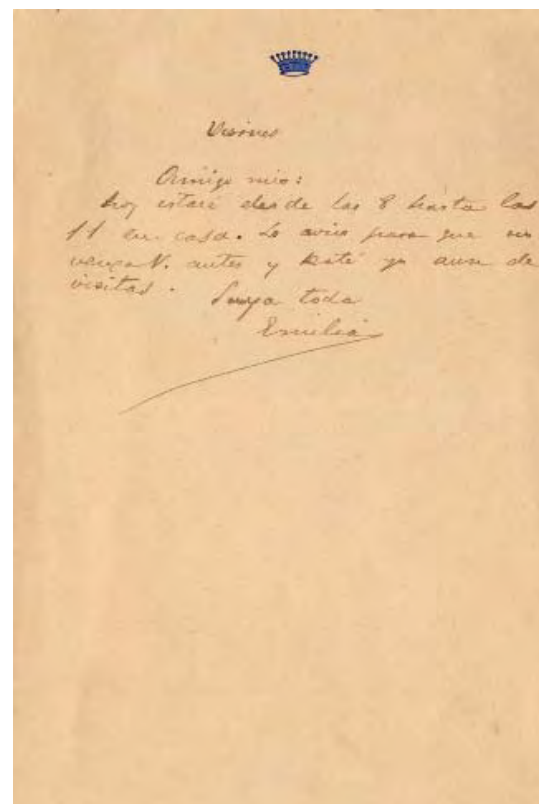 Viernes
Amigo mio:
hoy estaré desde las 8 hasta las
11 en casa. Lo aviso para que no
venga V. antes y esté yo aun de
visitas.
Suya toda
Emilia